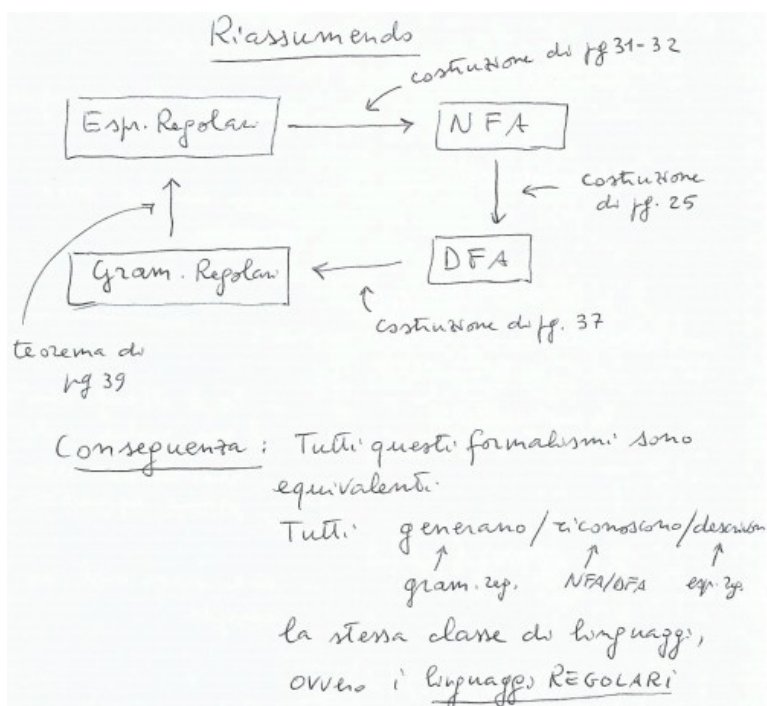 Riassumendo
costruzione di pg 31-32
Espr. Regolari
NFA
costruzione
di pg. 25
Gram. Regolari
DFA
costruzione di pg. 37
teorema di
pg 39
Conseguenza: Tutti questi formalismi sono
equivalenti.
Tutti generano/riconoscono/descrivono
gram. reg. NFA/DFA esp. reg.
la stessa classe di linguaggi,
ovvero i linguaggi REGOLARI